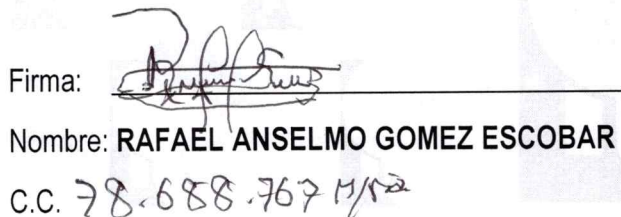 Firma:
Nombre: RAFAEL ANSELMO GOMEZ ESCOBAR
C.C. 78.688.767